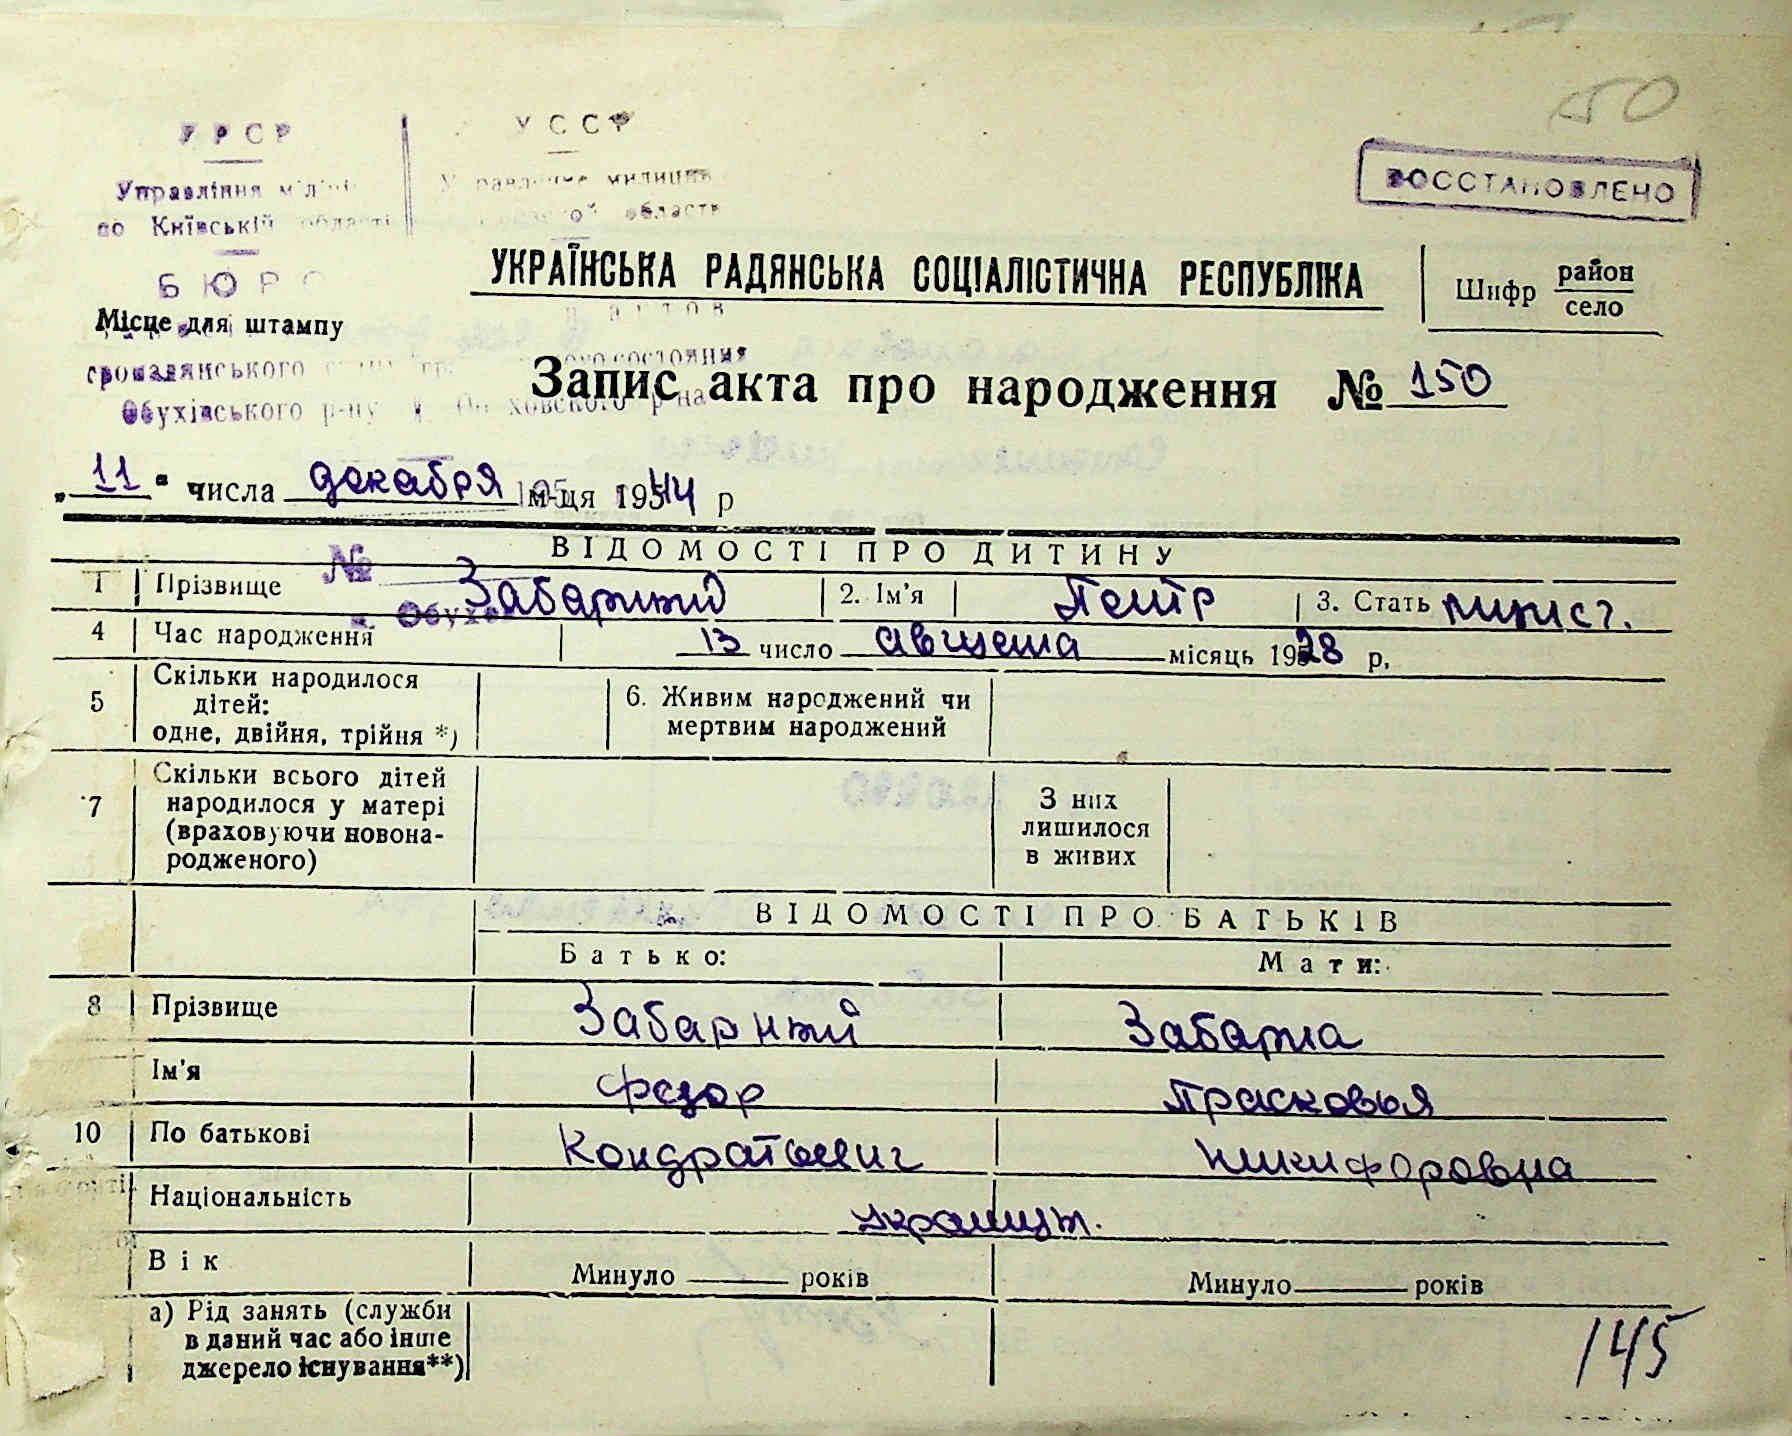 50
УРСР УССР
Управління міліції Управление милиции
по Київській області области
ВОССТАНОВЛЕНО
БЮРО
УКРАЇНСЬКА РАДЯНСЬКА СОЦІАЛІСТИЧНА РЕСПУБЛІКА
Шифр район село
Місце для штампу
громадянського состояния
Обухівського р-ну Обуховского р-на
Запис акта про народження № 150
„11“ числа декабря м-ця 1944 р
ВІДОМОСТІ ПРО ДИТИНУ
№
1 Прізвище Забарный 2. Ім'я Петр 3. Стать мужск.
4 Час народження 13 число августа місяць 1928 р.
5 Скільки народилося дітей: одне, двійня, трійня *) 6. Живим народжений чи мертвим народжений
7 Скільки всього дітей народилося у матері (враховуючи новонародженого) З них лишилося в живих
ВІДОМОСТІ ПРО БАТЬКІВ
Батько: Мати:
8 Прізвище Забарный Забарна
Ім'я Федор Прасковья
10 По батькові Кондратьевич Никифоровна
Національність украинц.
Вік Минуло років Минуло років
а) Рід занять (служби в даний час або інше джерело існування**)
145